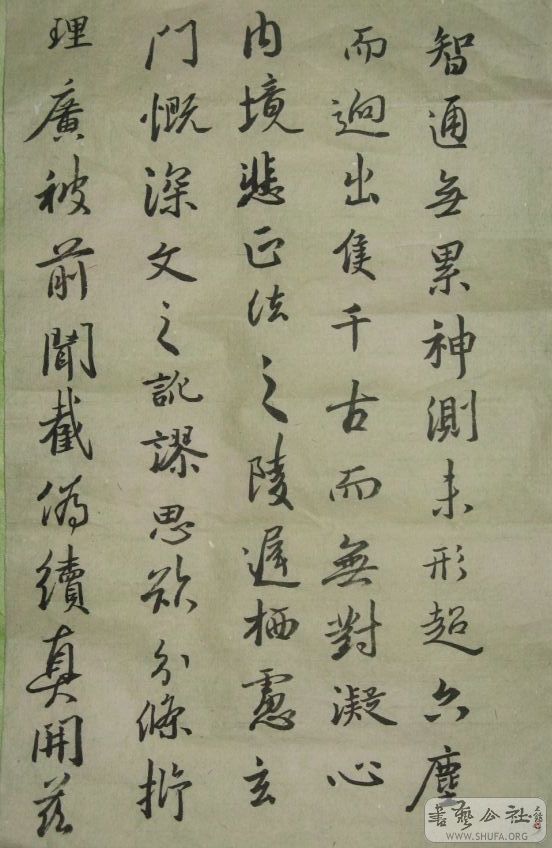 智通無累神測未形超六塵
而迥出隻千古而無對凝心
內境悲正法之陵遲栖慮玄
門慨深文之訛謬思欲分條析
理廣被前聞截偽續真開茲
書藝公社
WWW.SHUFA.ORG